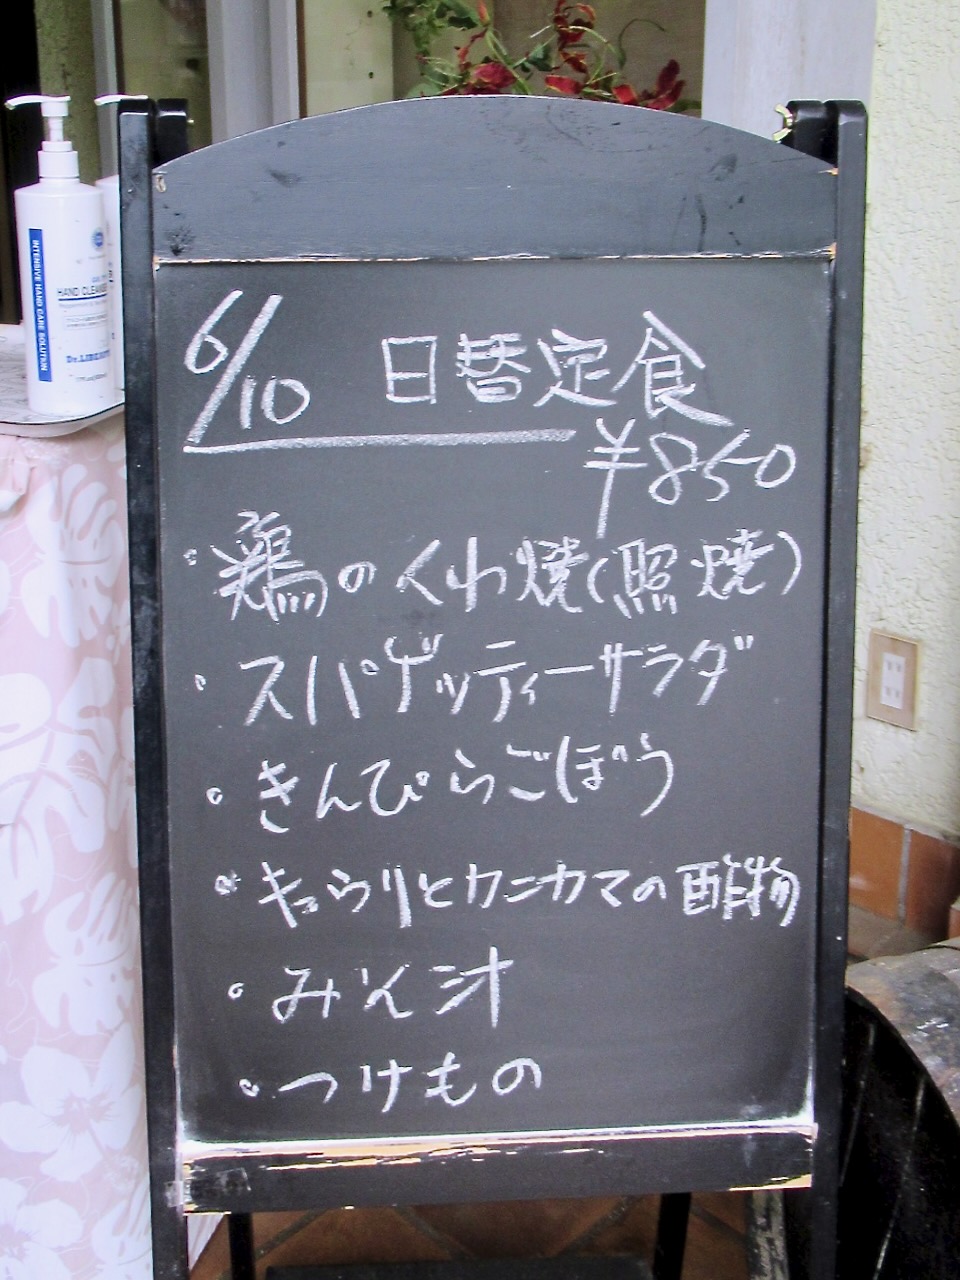 6/10 日替定食
¥850
・鶏のくわ焼(照焼)
・スパゲッティーサラダ
・きんぴらごぼう
・キュウリとカニカマの酢物
・みそ汁
・つけもの
INTENSIVE HAND CARE SOLUTION
HAND CLEANSE